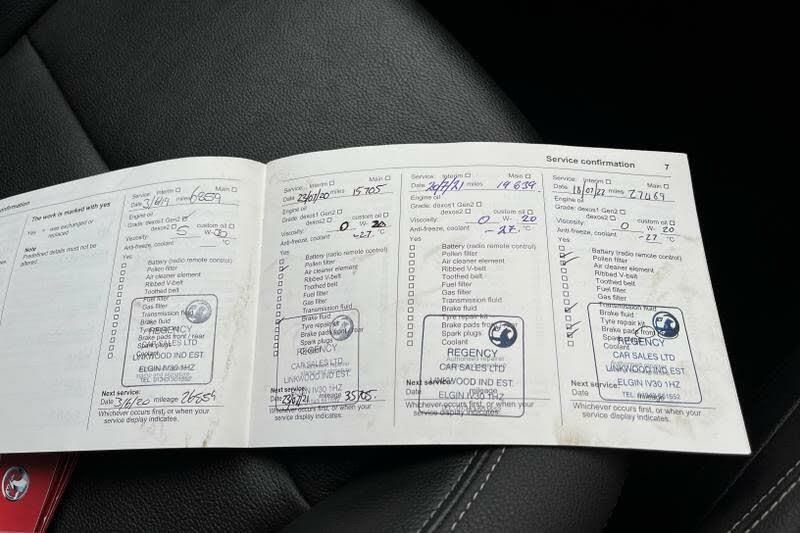 Service confirmation 7
onfirmation
The work is marked with yes
Yes = was exchanged or
replaced
Note
Predefined details must not be
altered
Service: Interim Main
Date 3/6/19 miles 6859
Engine oil
Grade: dexos1 Gen2
dexos2 custom oil
Viscosity: W-
Anti-freeze, coolant °C
Yes
Battery (radio remote control)
Pollen filter
Air cleaner element
Ribbed V-belt
Toothed belt
Fuel filter
Gas filter
Transmission fluid
Brake fluid
Tyre repair kit
Brake pads front / rear
Spark plugs
Coolant
REGENCY
CAR SALES LTD
LINKWOOD IND EST.
ELGIN IV30 1HZ
TEL: 01343 551552
Next service:
Date 3/6/20 mileage 26859
Whichever occurs first, or when your
service display indicates.
Service: Interim Main
Date 23/07/20 miles 15705
Engine oil
Grade: dexos1 Gen2
dexos2 custom oil
Viscosity: 0 W- 20
Anti-freeze, coolant -27 °C
Yes
Battery (radio remote control)
Pollen filter
Air cleaner element
Ribbed V-belt
Toothed belt
Fuel filter
Gas filter
Transmission fluid
Brake fluid
Tyre repair kit
Brake pads front / rear
Spark plugs
REGENCY
CAR SALES LTD
LINKWOOD IND EST.
ELGIN IV30 1HZ
Next service:
Date 23/07/21 mileage 35705
Whichever occurs first, or when your
service display indicates.
Service: Interim Main
Date 20/7/21 miles 19639
Engine oil
Grade: dexos1 Gen2
dexos2 custom oil
Viscosity: 0 W- 20
Anti-freeze, coolant -27 °C
Yes
Battery (radio remote control)
Pollen filter
Air cleaner element
Ribbed V-belt
Toothed belt
Fuel filter
Gas filter
Transmission fluid
Brake fluid
Tyre repair kit
Brake pads front
Spark plugs
Coolant
REGENCY
CAR SALES LTD
LINKWOOD IND EST.
ELGIN IV30 1HZ
Next service:
Date
Whichever occurs first, or when your
service display indicates.
Service: Interim Main
Date 18/07/22 miles 27469
Engine oil
Grade: dexos1 Gen2
dexos2 custom oil
Viscosity: 0 W- 20
Anti-freeze, coolant -27 °C
Yes
Battery (radio remote control)
Pollen filter
Air cleaner element
Ribbed V-belt
Toothed belt
Fuel filter
Gas filter
Transmission fluid
Brake fluid
Tyre repair kit
Brake pads front
Spark plugs
Coolant
REGENCY
CAR SALES LTD
LINKWOOD IND EST.
ELGIN IV30 1HZ
TEL: 01343 551552
Next service:
Date mileage
Whichever occurs first, or when your
service display indicates.